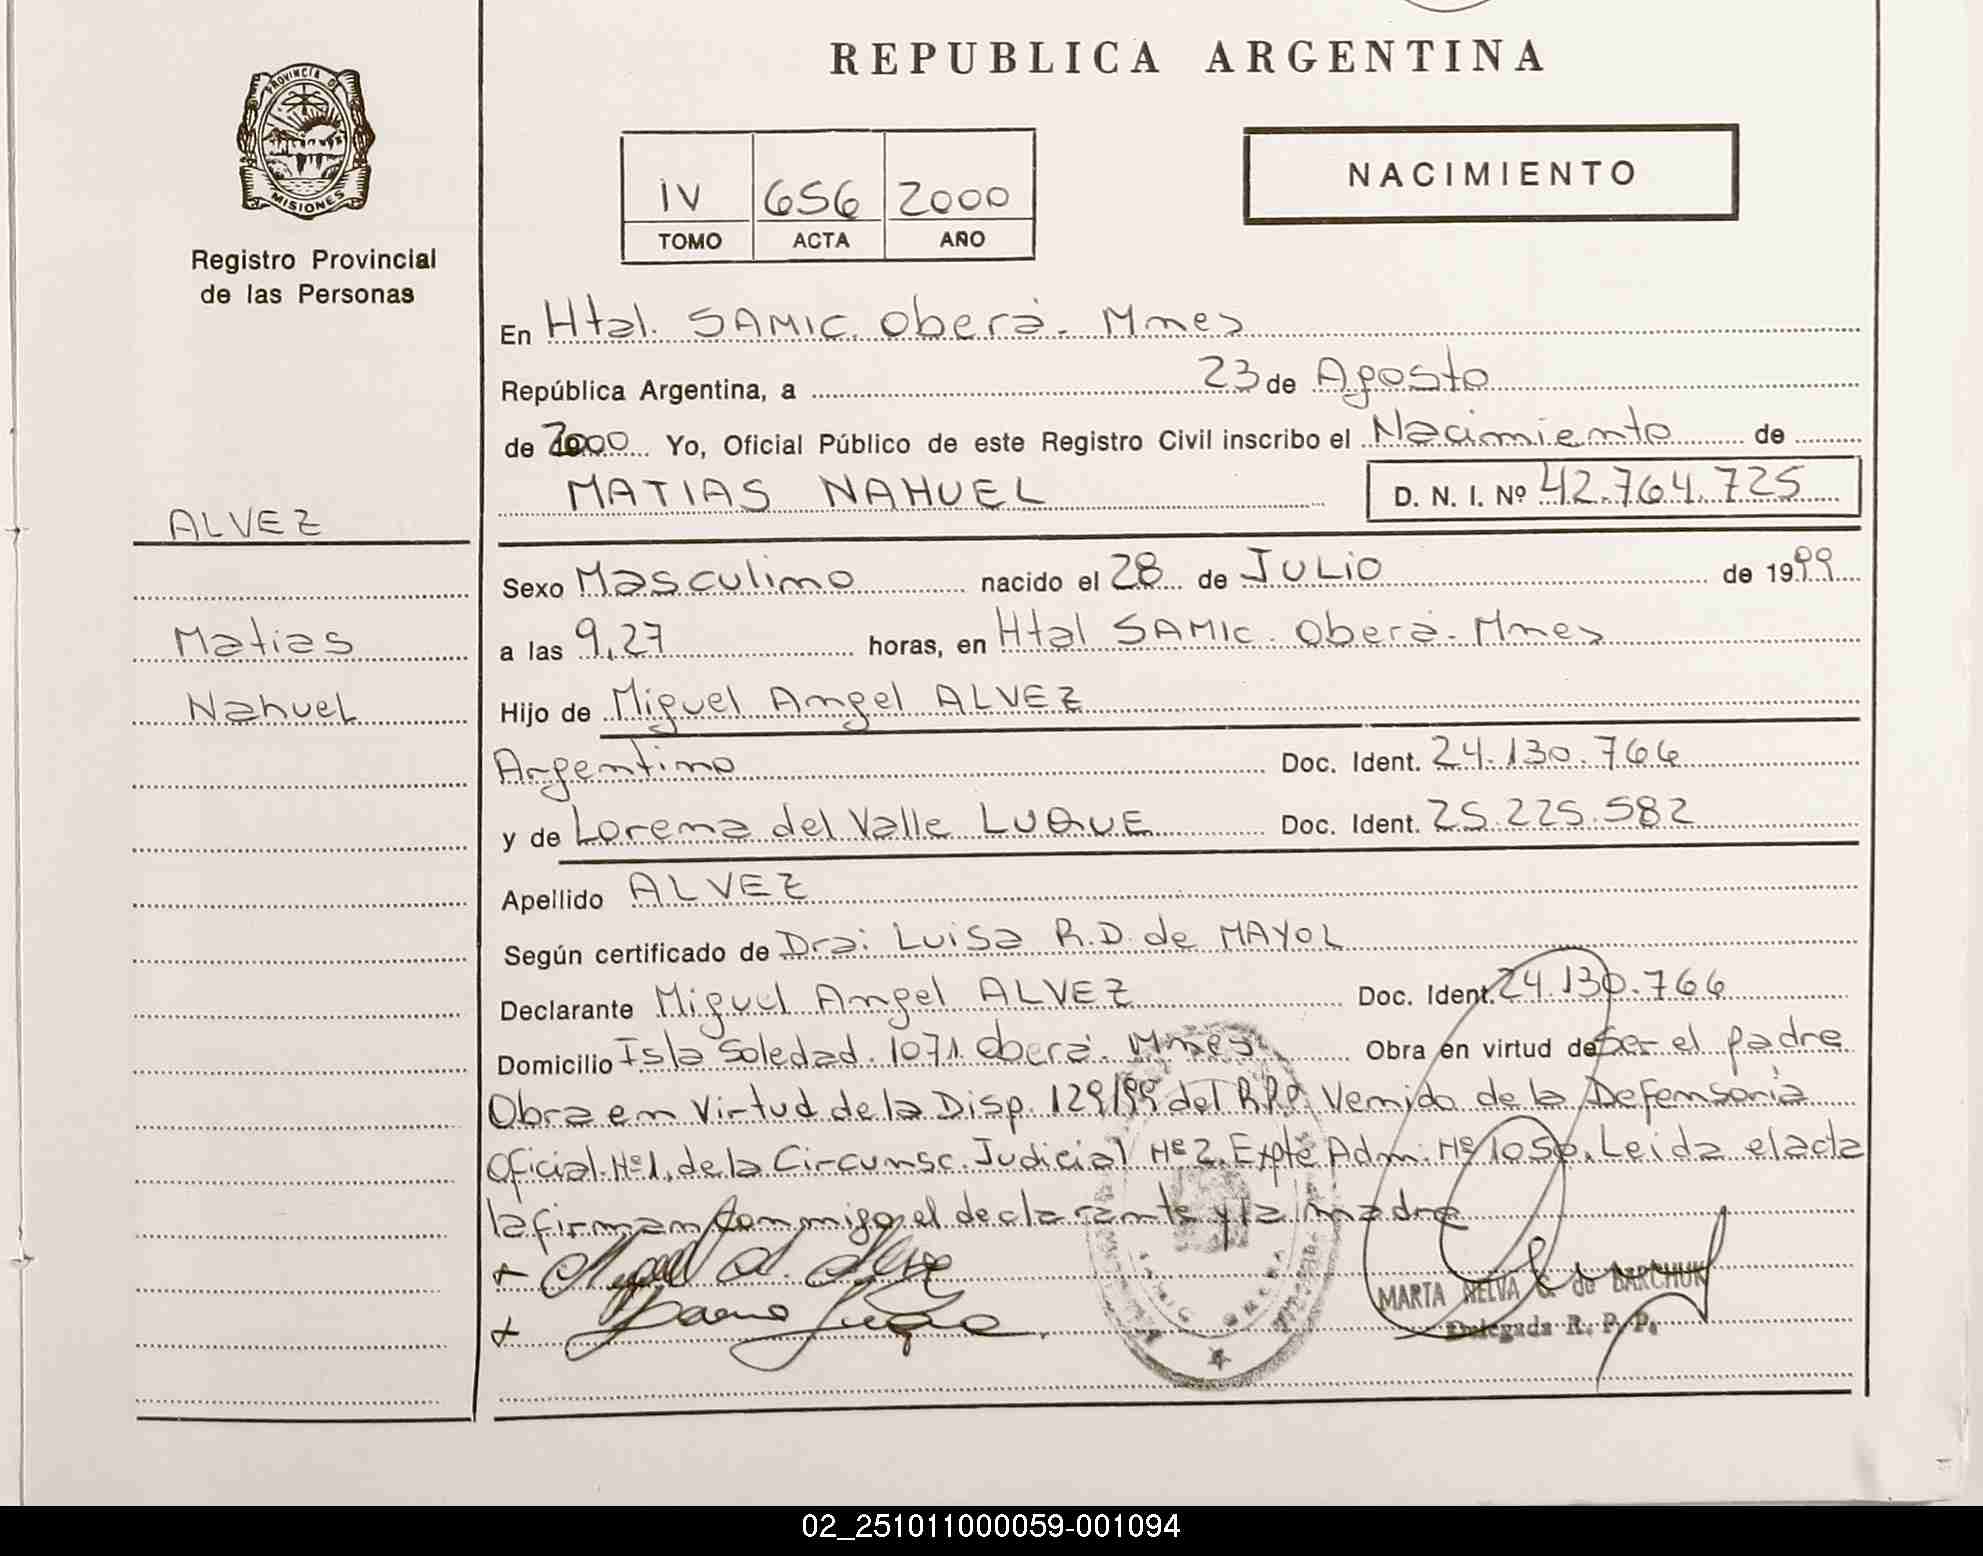 REPUBLICA ARGENTINA
PROVINCIA DE
MISIONES
Registro Provincial
de las Personas
IV 656 2000
TOMO ACTA AÑO
NACIMIENTO
En Htal. SAMIC. Oberá. Mnes
República Argentina, a 23 de Agosto
de 2000 Yo, Oficial Público de este Registro Civil inscribo el Nacimiento de
MATIAS NAHUEL D. N. I. Nº 42.764.725
ALVEZ
Matias
Nahuel
Sexo Masculino nacido el 28 de JULIO de 1999
a las 9,27 horas, en Htal SAMIC. Oberá. Mnes
Hijo de Miguel Angel ALVEZ
Argentino Doc. Ident. 24.130.766
y de Lorena del Valle LUQUE Doc. Ident. 25.225.582
Apellido ALVEZ
Según certificado de Dra: Luisa R.D. de MAYOL
Declarante Miguel Angel ALVEZ Doc. Ident. 24.130.766
Domicilio Isla Soledad. 1071. Oberá. Mnes Obra en virtud de Ser el padre
Obra en Virtud de la Disp. 129/99 del R.P.P. Venido de la Defensoria
Oficial. Nº1, de la Circunsc. Judicial Nº2. Expte Adm. Nº 1050. Leida el acta
la firman conmigo el declarante y la madre
MARTA NELVA G. de BARCHUK
Delegada R. P. P.
02_251011000059-001094